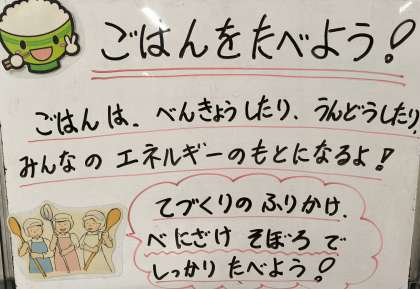 ごはんをたべよう!
ごはんは、べんきょうしたり、うんどうしたり
みんなの エネルギーのもとになるよ!
てづくりの ふりかけ、
べにざけ そぼろ で
しっかり たべよう!